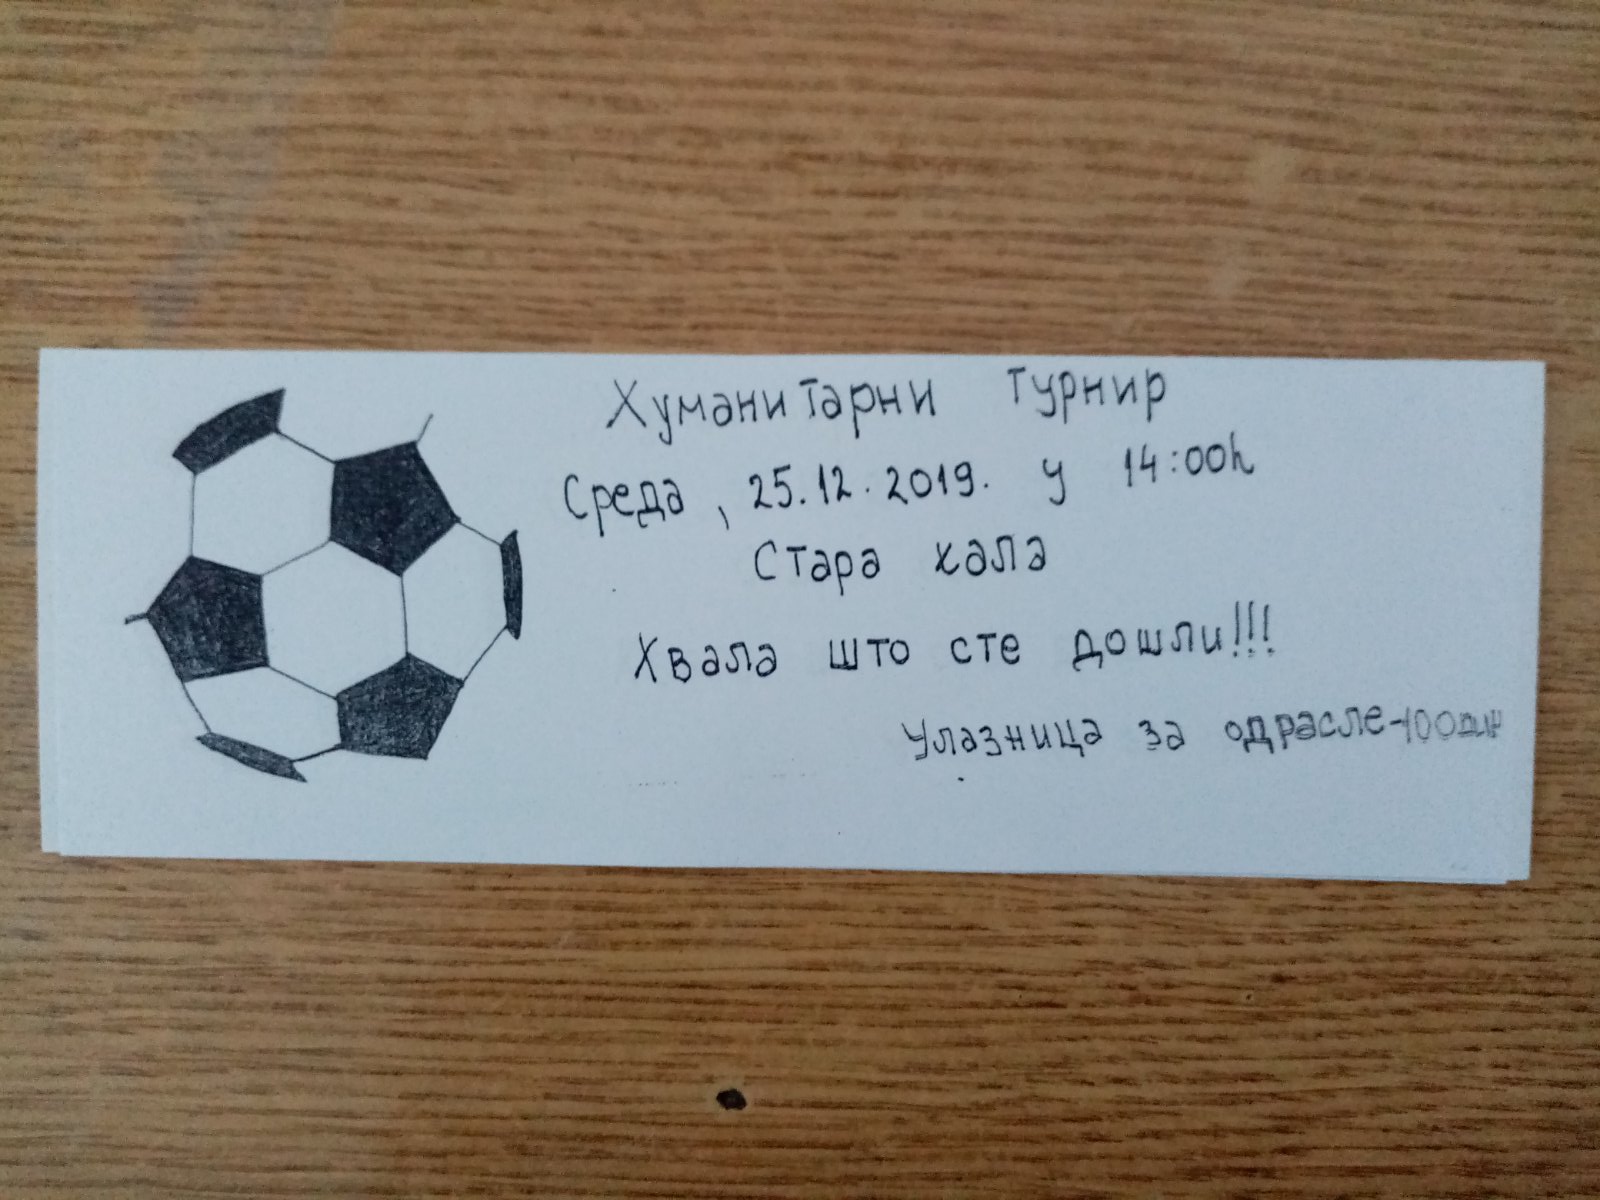 Хуманитарни турнир
Среда, 25.12.2019. у 14:00h
Стара хала
Хвала што сте дошли!!!
Улазница за одрасле-100дин